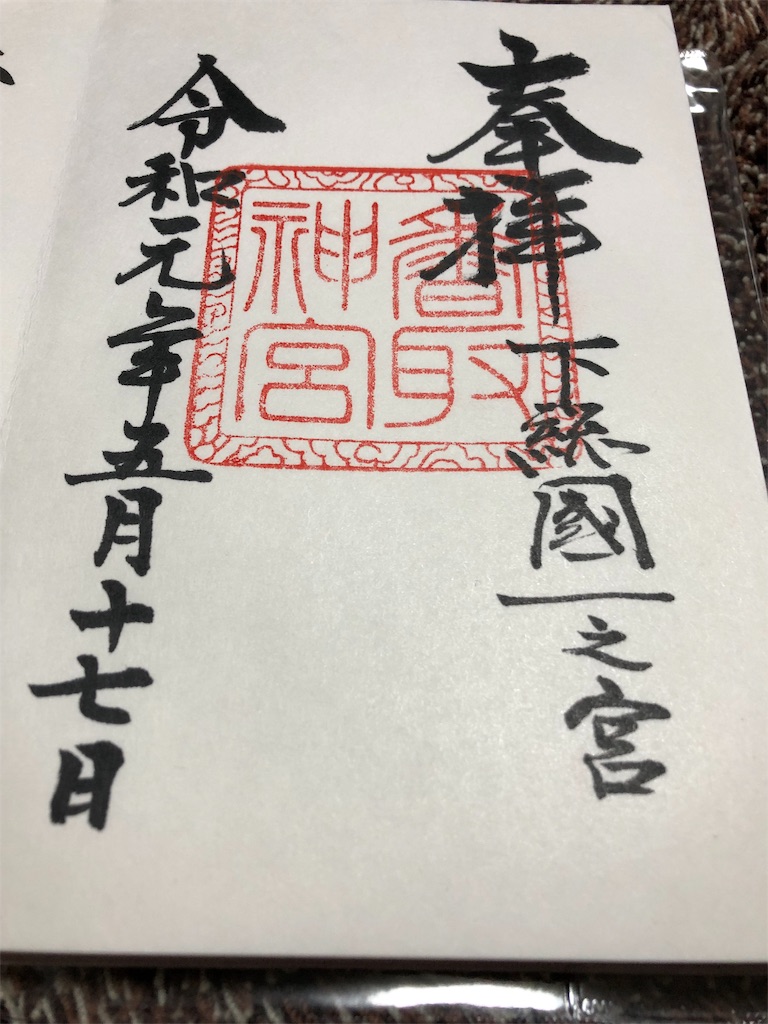 奉拝
下総國一之宮
香取
神宮
令和元年五月十七日